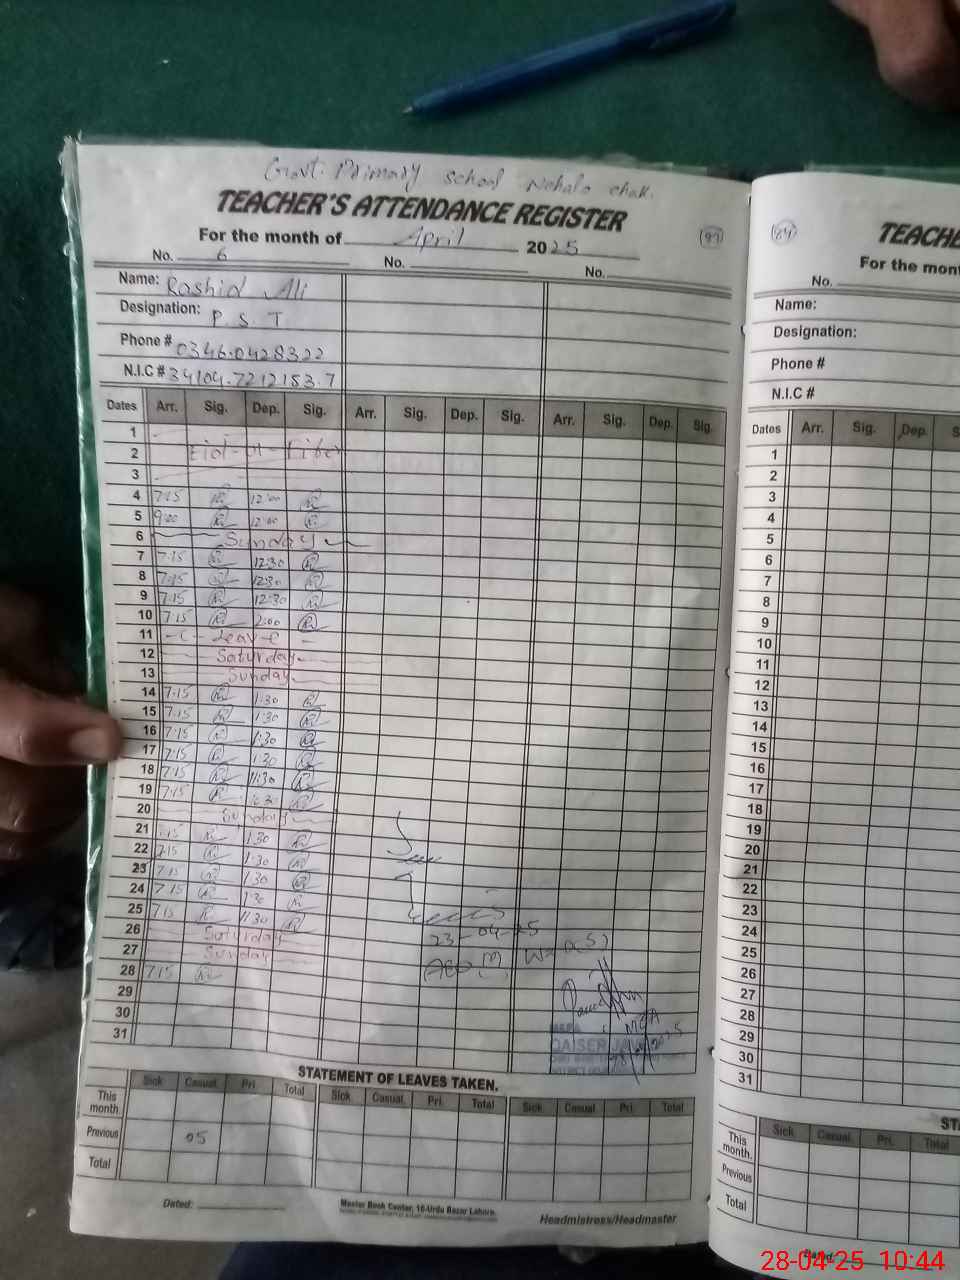 Govt. Primary school Nohalo chak.
TEACHER'S ATTENDANCE REGISTER
For the month of April 2025
(97)
No. 6 No. No.
Name: Rashid Ali
Designation: P.S.T
Phone # 0346.0428322
N.I.C # 34104.7212153.7
Dates Arr. Sig. Dep. Sig. Arr. Sig. Dep. Sig. Arr. Sig. Dep. Sig.
1
2 Eid-ul-Fiter
3
4 7:15 12:00
5 9:00 12:00
6 Sunday
7 7:15 12:30
8 7:15 12:30
9 7:15 12:30
10 7:15 2:00
11 - C - Leave
12 Saturday
13 Sunday
14 7:15 1:30
15 7:15 1:30
16 7:15 1:30
17 7:15 1:30
18 7:15 11:30
19 7:15
20 Sunday
21 7:15 1:30
22 7:15 1:30
23 7:15 1:30
24 7:15 1:30
25 7:15 11:30
26 Saturday
27 Sunday
28 7:15
29
30
31
23-04-25
AEO (M)
MEA
QAISER
STATEMENT OF LEAVES TAKEN.
Sick Casual Pri. Total Sick Casual Pri. Total Sick Casual Pri. Total
This month.
Previous 05
Total
Dated:
Master Book Center, 16-Urdu Bazar Lahore.
Headmistress/Headmaster
TEACHE
For the mon
No.
Name:
Designation:
Phone #
N.I.C #
Dates Arr. Sig. Dep. S
1
2
3
4
5
6
7
8
9
10
11
12
13
14
15
16
17
18
19
20
21
22
23
24
25
26
27
28
29
30
31
STA
Sick Casual Pri. Total
This month.
Previous
Total
Dated:
28-04-25 10:44